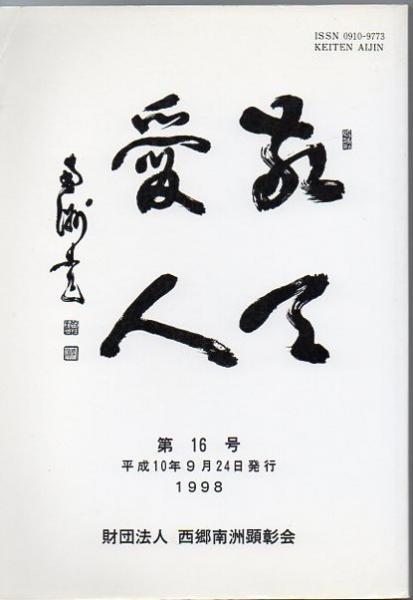 ISSN 0910-9773
KEITEN AIJIN
敬天
愛人
南洲書
第16号
平成10年9月24日発行
1998
財団法人 西郷南洲顕彰会